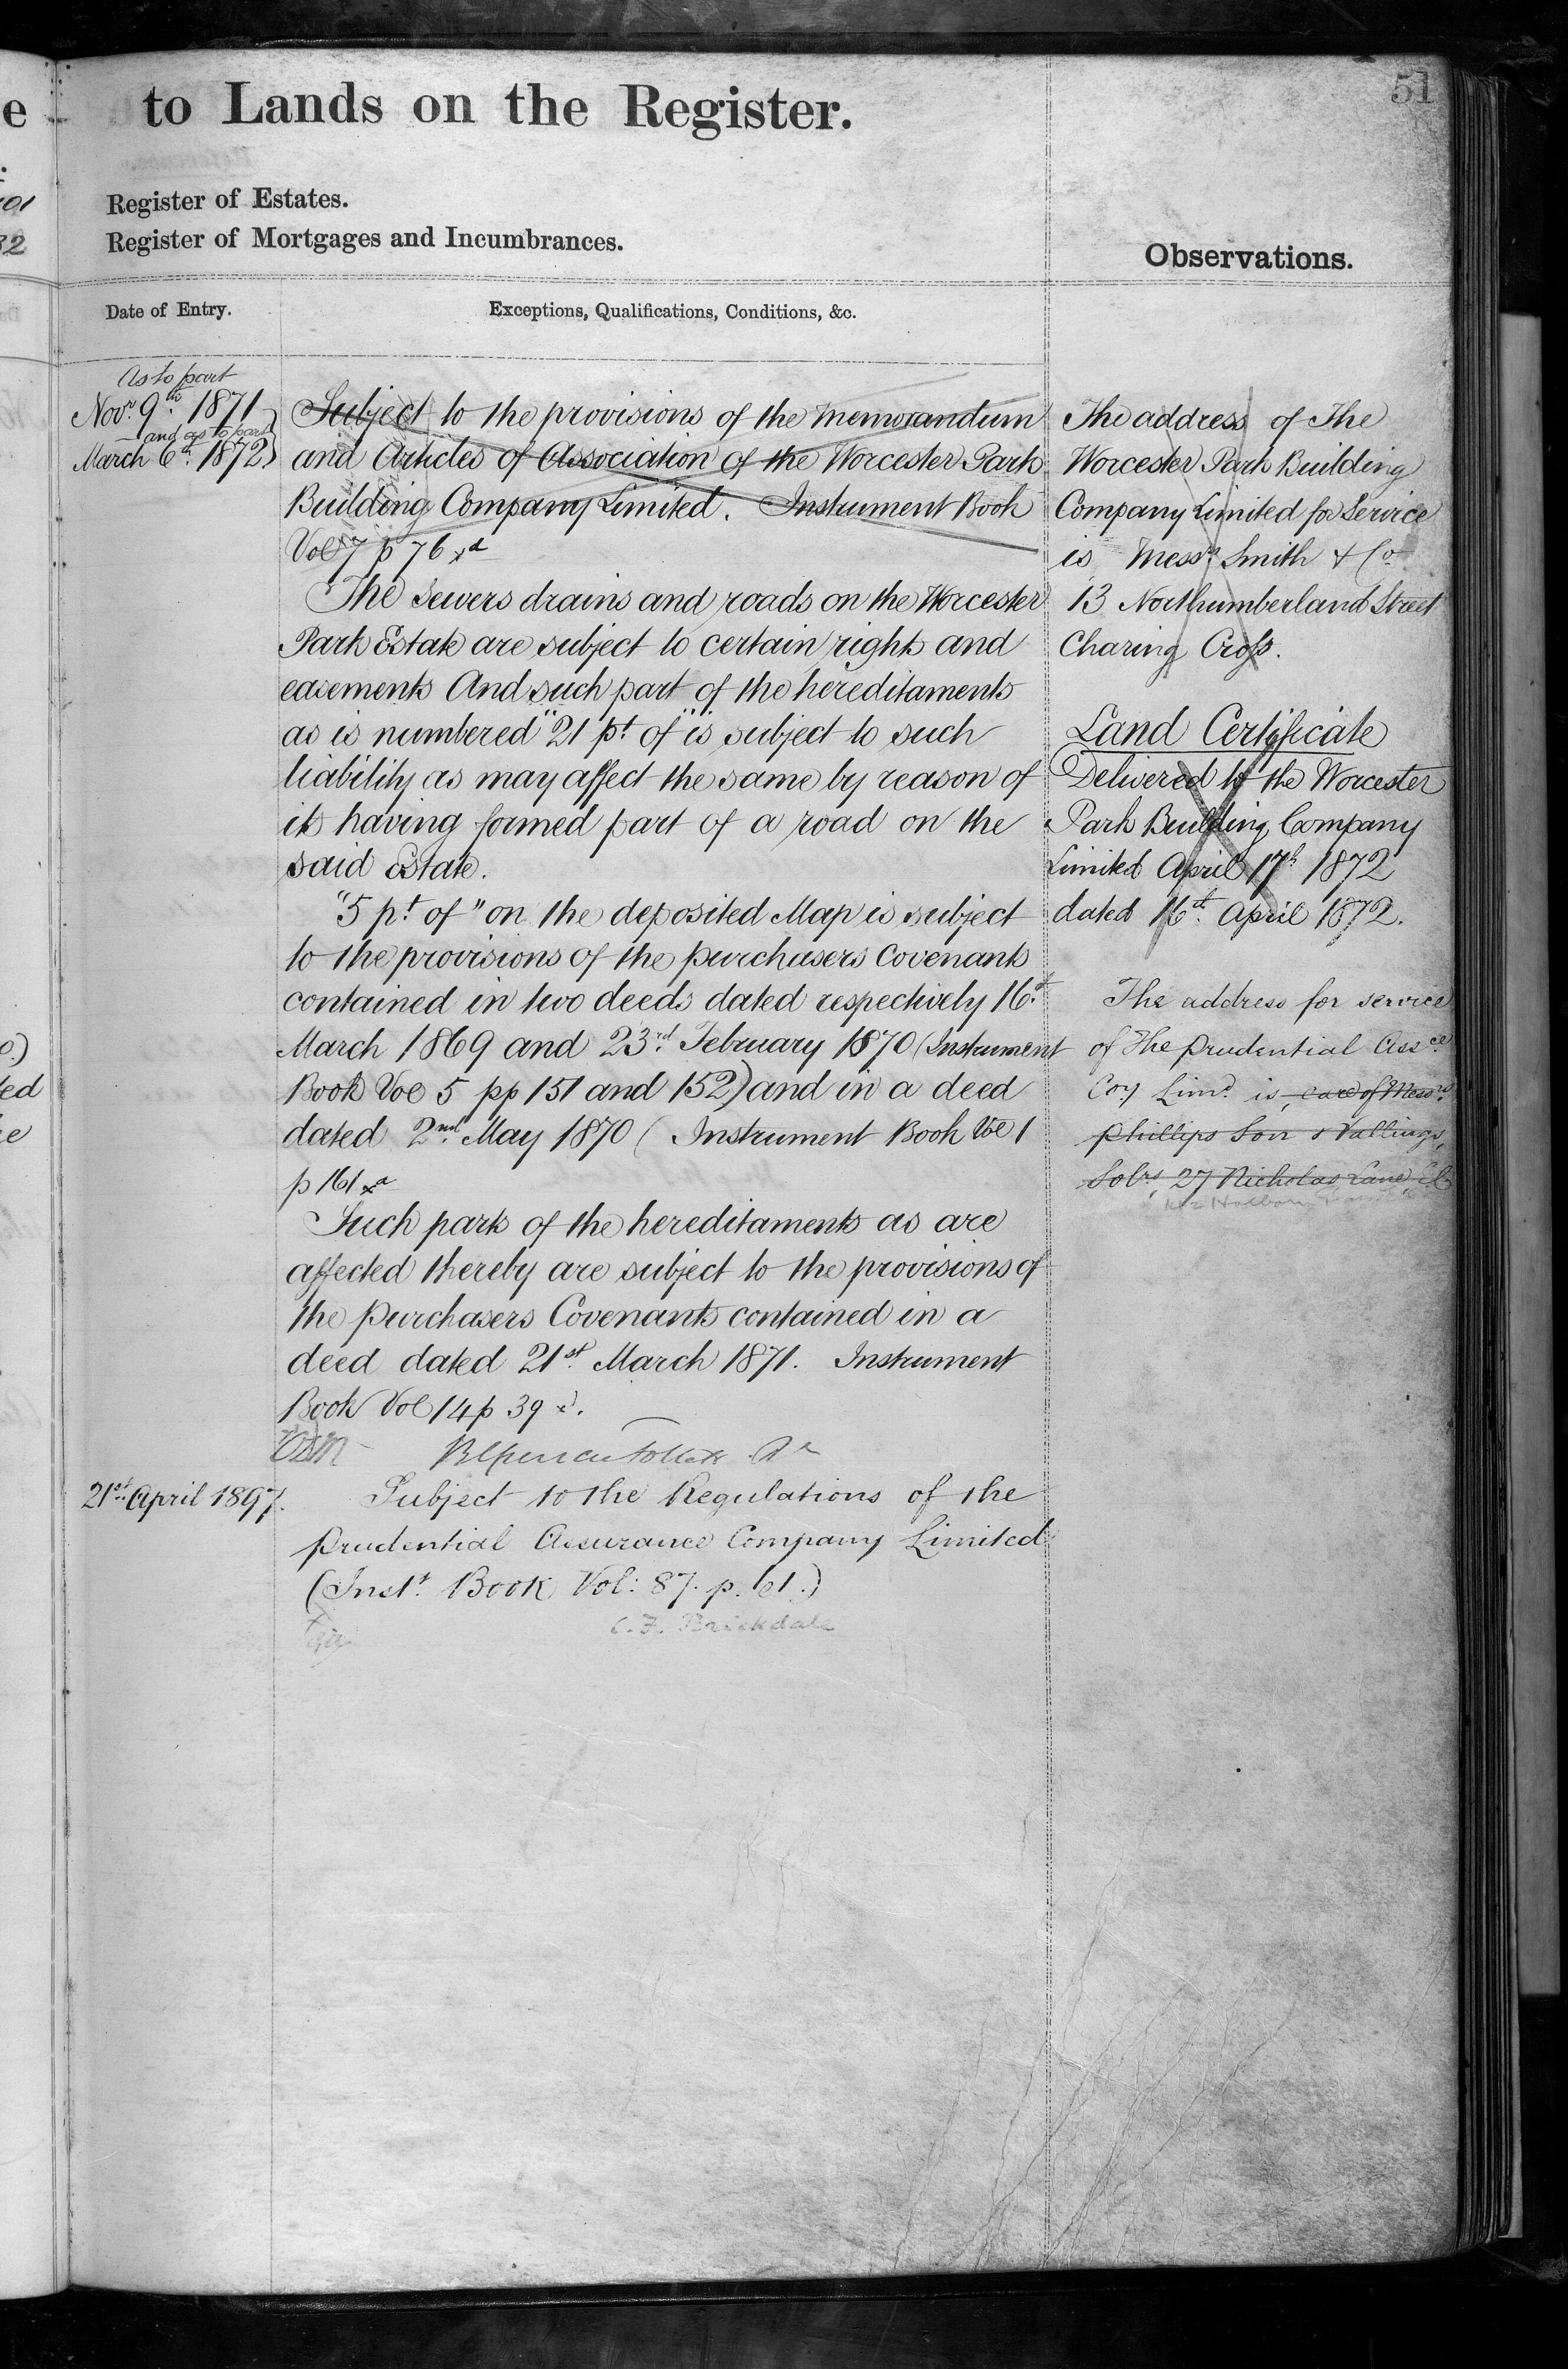 51
to Lands on the Register.
Register of Estates.
Register of Mortgages and Incumbrances.
Observations.
Date of Entry.
Exceptions, Qualifications, Conditions, &c.
As to part
Novr. 9th. 1871
and as to part
March 6th. 1872
Subject to the provisions of the Memorandum
and Articles of Association of the Worcester Park
Building Company Limited. Instrument Book
Vol 7 p 76
The Sewers drains and roads on the Worcester
Park Estate are subject to certain rights and
easements And such part of the hereditaments
as is numbered "21 pt. of" is subject to such
liability as may affect the same by reason of
its having formed part of a road on the
said Estate.
"5 pt. of" on the deposited Map is subject
to the provisions of the purchasers Covenants
contained in two deeds dated respectively 16th.
March 1869 and 23rd. February 1870 (Instrument
Book Vol 5 pp 151 and 152) and in a deed
dated 2nd. May 1870 (Instrument Book Vol 1
p 161
Such parts of the hereditaments as are
affected thereby are subject to the provisions of
the purchasers Covenants contained in a
deed dated 21st. March 1871. Instrument
Book Vol 14 p 39
21st. April 1897.
Subject to the Regulations of the
Prudential Assurance Company Limited
(Inst. Book Vol: 87. p. 61.)
C. F. Brickdale
The address of The
Worcester Park Building
Company Limited for Service
is Messrs. Smith & Co
13 Northumberland Street
Charing Cross.
Land Certificate
Delivered to the Worcester
Park Building Company
Limited April 17th 1872
dated 16th. April 1872.
The address for service
of The Prudential Assce.
Coy Limd. is, care of Messrs.
Phillips Son & Vallings,
Solrs, 27 Nicholas Lane, E.C
Holborn
101
32
ed
e